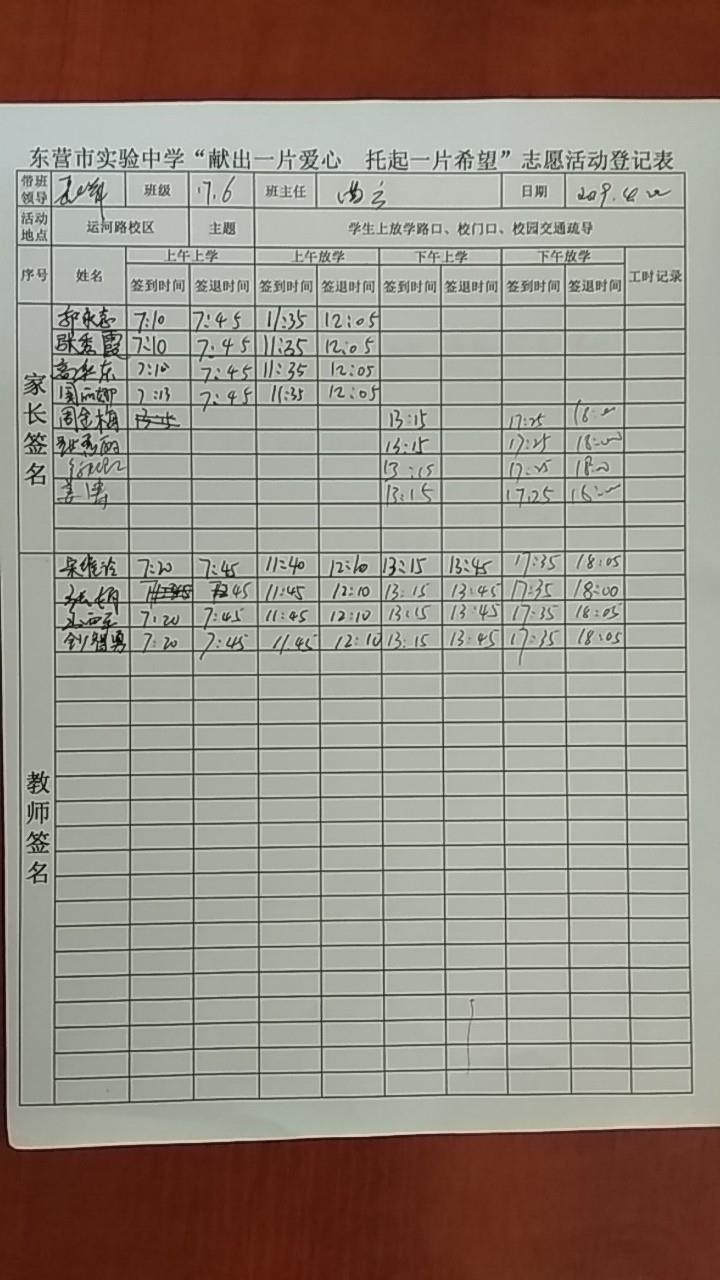 东营市实验中学“献出一片爱心 托起一片希望”志愿活动登记表
带班领导 班级 17.6 班主任 日期
活动地点 运河路校区 主题 学生上放学路口、校门口、校园交通疏导
序号 姓名 上午上学 上午放学 下午上学 下午放学 工时记录
签到时间 签退时间 签到时间 签退时间 签到时间 签退时间 签到时间 签退时间
家长签名
郭永志 7:10 7:45 11:35 12:05
张秀霞 7:10 7:45 11:35 12:05
7:10 7:45 11:35 12:05
周丽娜 7:13 7:45 11:35 12:05
周金梅 13:15 13:15 17:25 18:00
13:15 17:25 18:00
13:15 17:25 18:00
姜涛 13:15 17:25 18:00
教师签名
7:20 7:45 11:40 12:10 13:15 13:45 17:35 18:05
7:45 11:45 12:10 13:15 13:45 17:35 18:00
7:20 7:45 11:45 12:10 13:15 13:45 17:35 18:05
刘智勇 7:20 7:45 11.45 12:10 13:15 13:45 17:35 18:05